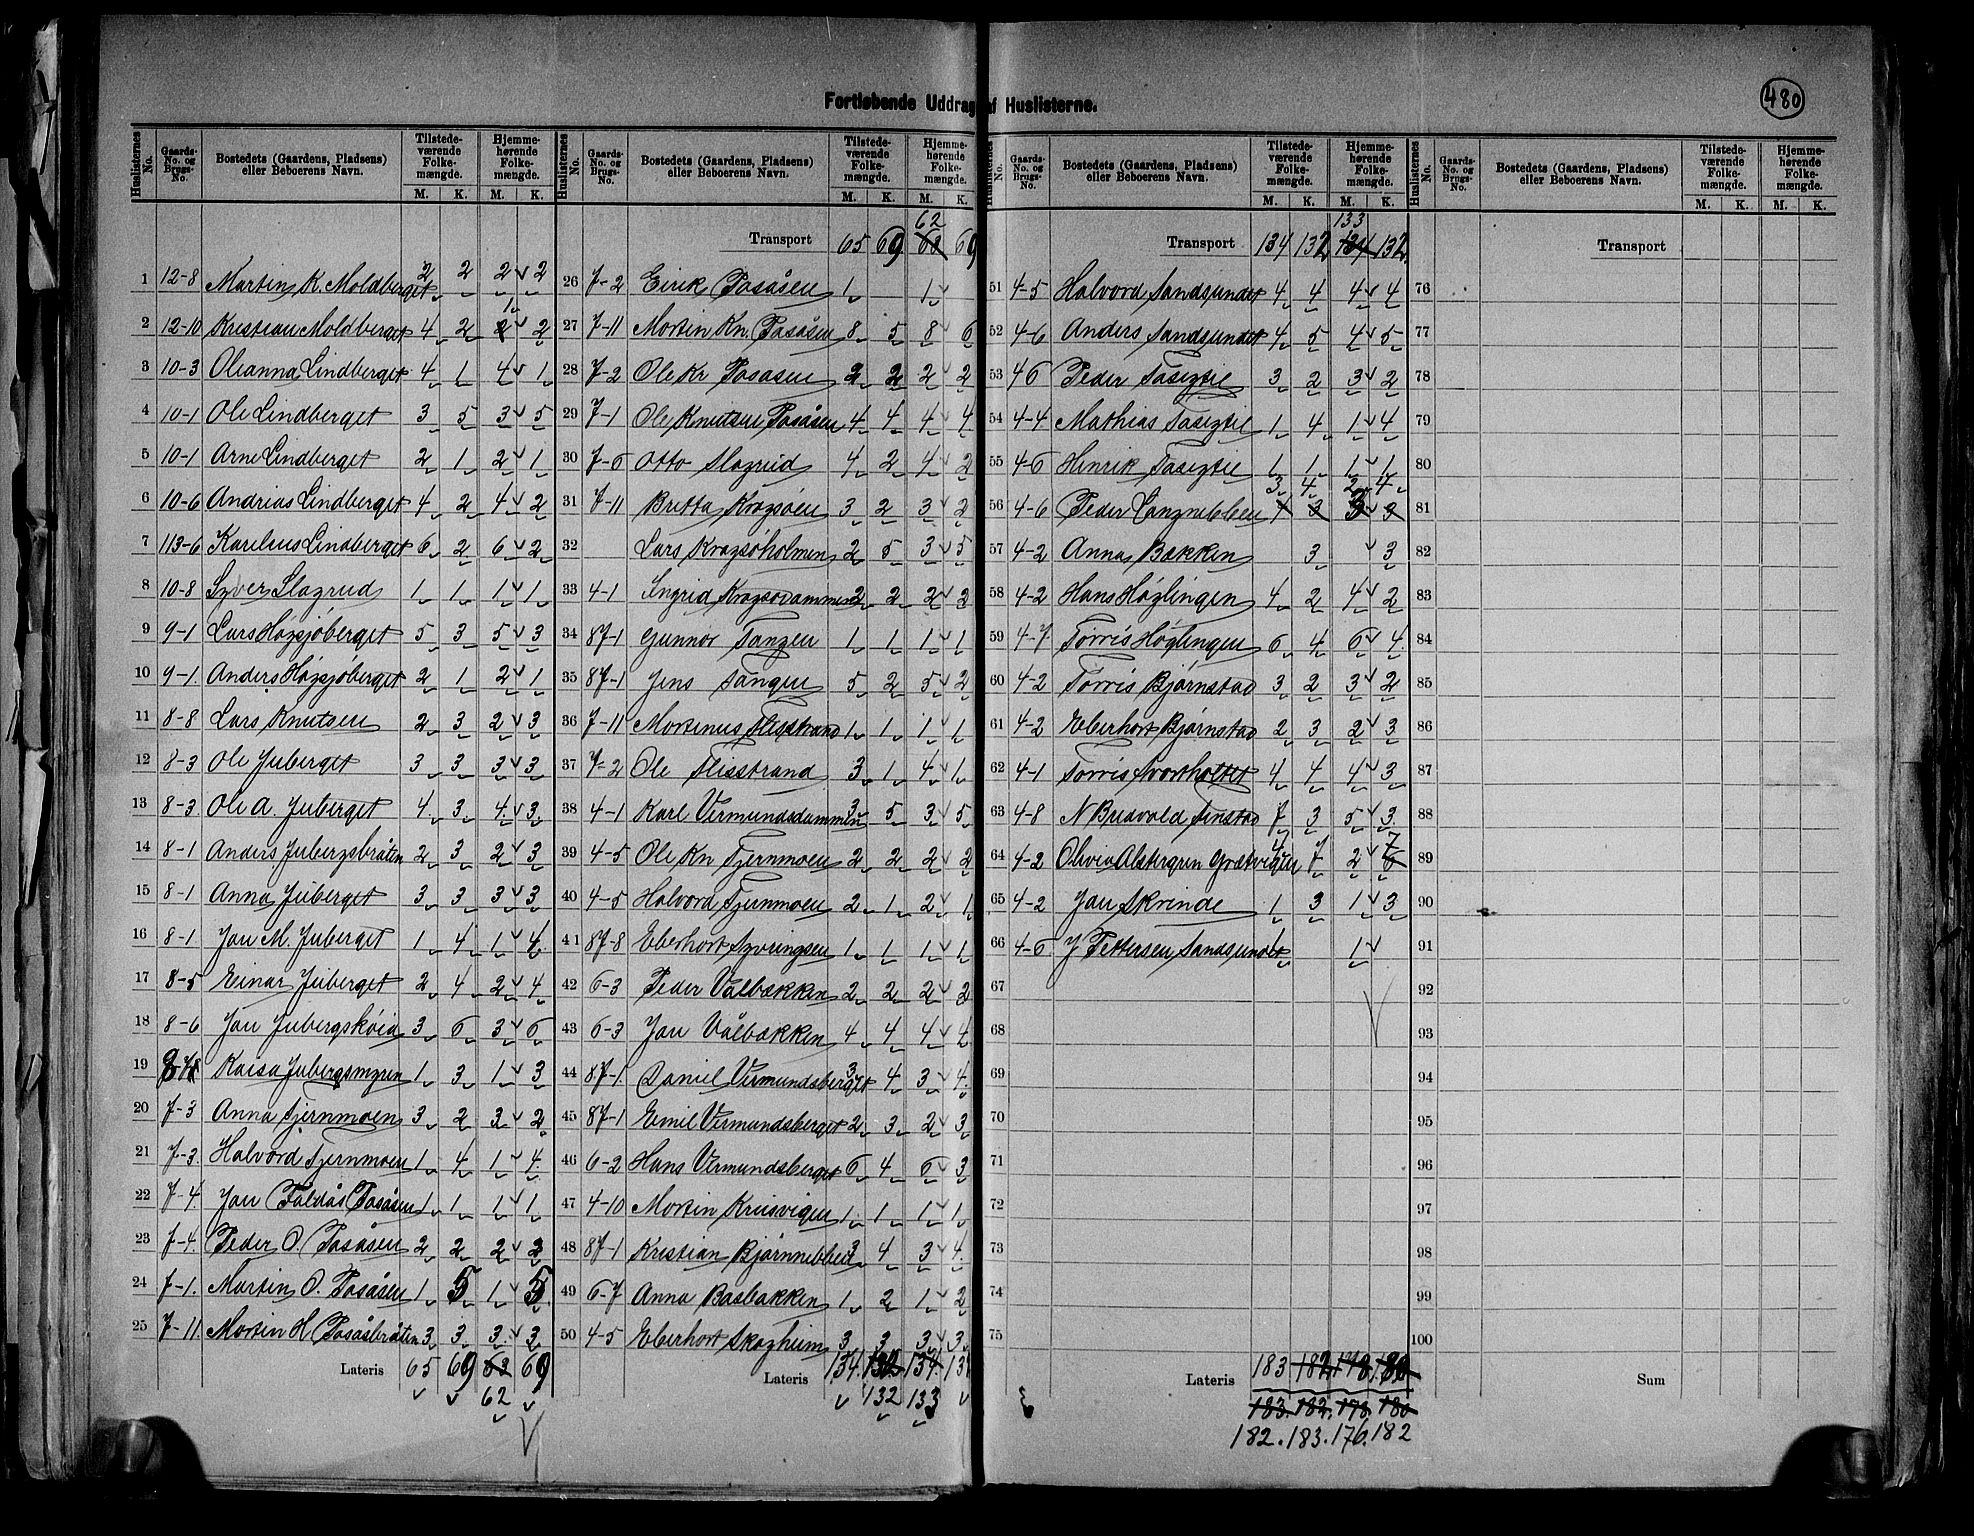 480
Fortløbende Uddrag af Huslisterne.
Huslisternes No. Gaards-No. og Brugs-No. Bostedets (Gaardens, Pladsens) eller Beboerens Navn. Tilstedeværende Folkemængde. M. K. Hjemmehørende Folkemængde. M. K.
1 12-8 Martin K. Moldberget 2 2 2 2
2 12-10 Kristian Moldberget 4 2 1 2
3 10-3 Oleanna Lindberget 4 1 4 1
4 10-1 Ole Lindberget 3 5 3 5
5 10-1 Arne Lindberget 2 1 2 1
6 10-6 Andrias Lindberget 4 2 4 2
7 113-6 Karelius Lindberget 6 2 6 2
8 10-8 Syver Slagrud 1 1 1 1
9 9-1 Lars Høgsjøberget 5 3 5 3
10 9-1 Anders Høgsjøberget 2 1 2 1
11 8-8 Lars Knutsen 2 3 2 3
12 8-3 Ole Juberget 3 3 3 3
13 8-3 Ole A. Juberget 4 3 4 3
14 8-1 Anders Jubergsbråten 2 3 2 3
15 8-1 Anna Juberget 3 3 3 3
16 8-1 Jan M. Juberget 1 4 1 4
17 8-5 Einar Juberget 2 4 2 4
18 8-6 Jan Jubergskøia 3 6 3 6
19 Kaisa Jubergsmyren 1 3 1 3
20 7-3 Anna Tjernmoen 3 2 3 2
21 7-3 Halvord Tjernmoen 1 4 1 4
22 7-4 Jan Faldås Posåsen 1 1 1 1
23 7-4 Peder O. Posåsen 2 2 2 2
24 7-1 Martin O. Posåsen 1 5 1 5
25 7-11 Martin H Posåsbråten 3 3 3 3
Lateris 65 69 63 69
62
Huslisternes No. Gaards-No. og Brugs-No. Bostedets (Gaardens, Pladsens) eller Beboerens Navn. Tilstedeværende Folkemængde. M. K. Hjemmehørende Folkemængde. M. K.
62
Transport 65 69 63 69
26 7-2 Eirik Posåsen 1 1
27 7-11 Martin Kn. Posåsen 8 5 8 6
28 7-2 Ole Kr Posåsen 2 2 2 2
29 7-1 Ole Knutsen Posåsen 4 4 4 4
30 7-6 Otto Slagrud 4 2 4 2
31 7-11 Britta Kragsøen 3 2 3 2
32 Lars Kragsøholmen 2 5 3 5
33 4-1 Ingrid Kragsodammen 2 2 2 2
34 87-1 Gunnor Tangen 1 1 1 1
35 87-1 Jens Tangen 5 2 5 2
36 7-11 Martinus Flisstrand 1 1 1 1
37 7-2 Ole Flisstrand 3 1 4 1
38 4-1 Karl Vermundsdammen 3 5 3 5
39 4-5 Ole Kn Tjernmoen 2 2 2 2
40 4-5 Halvord Tjernmoen 2 1 2 1
41 87-8 Eberhart Syvringsen 1 1 1 1
42 6-3 Peder Välbækken 2 2 2 2
43 6-3 Jan Vålbækken 4 4 4 4
44 87-1 Daniel Vermundsberget 3 4 3 4
45 87-1 Emil Vermundsberget 2 3 2 3
46 6-2 Hans Vermundsberget 6 4 6 3
47 4-10 Martin Kruisvigen 1 1 1 1
48 87-1 Kristian Bjørnnebben 3 4 3 4
49 6-7 Anna Basbakken 1 2 1 2
50 4-5 Eberhart Skagheim 3 3 3 3
Lateris 134 134
132 133
Huslisternes No. Gaards-No. og Brugs-No. Bostedets (Gaardens, Pladsens) eller Beboerens Navn. Tilstedeværende Folkemængde. M. K. Hjemmehørende Folkemængde. M. K.
133
Transport 134 132 134 132
51 4-5 Halvord Sandsundet 4 4 4 4
52 4-6 Anders Sandsundet 4 5 4 5
53 4-6 Peder Tasigtil 3 2 3 2
54 4-4 Mathias Tasigtil 1 4 1 4
55 4-6 Henrik Tasigtil 1 1 1 1
3 4 2 4
56 4-6 Peder Langnebben 4 3 3 3
57 4-2 Anna Bakken 3 3
58 4-2 Hans Høglingen 4 2 4 2
59 4-7 Tørris Høglingen 6 4 6 4
60 4-2 Tørris Bjørnstad 3 2 3 2
61 4-2 Eberhart Bjørnstad 2 3 2 3
62 4-1 Tørris Svartholtet 4 4 4 3
63 4-8 N Bredvold Finstad 7 3 5 3
64 4-2 Olivia Alstergren Græsvigen 4 7 2 7
65 4-2 Jan Skrinde 1 3 1 3
66 4-6 J Pettersen Sandsundet 1 1
67
68
69
70
71
72
73
74
75
Lateris 183 182 178 180
183. 182. 178. 180
182. 183. 176. 182
Huslisternes No. Gaards-No. og Brugs-No. Bostedets (Gaardens, Pladsens) eller Beboerens Navn. Tilstedeværende Folkemængde. M. K. Hjemmehørende Folkemængde. M. K.
Transport
76
77
78
79
80
81
82
83
84
85
86
87
88
89
90
91
92
93
94
95
96
97
98
99
100
Sum